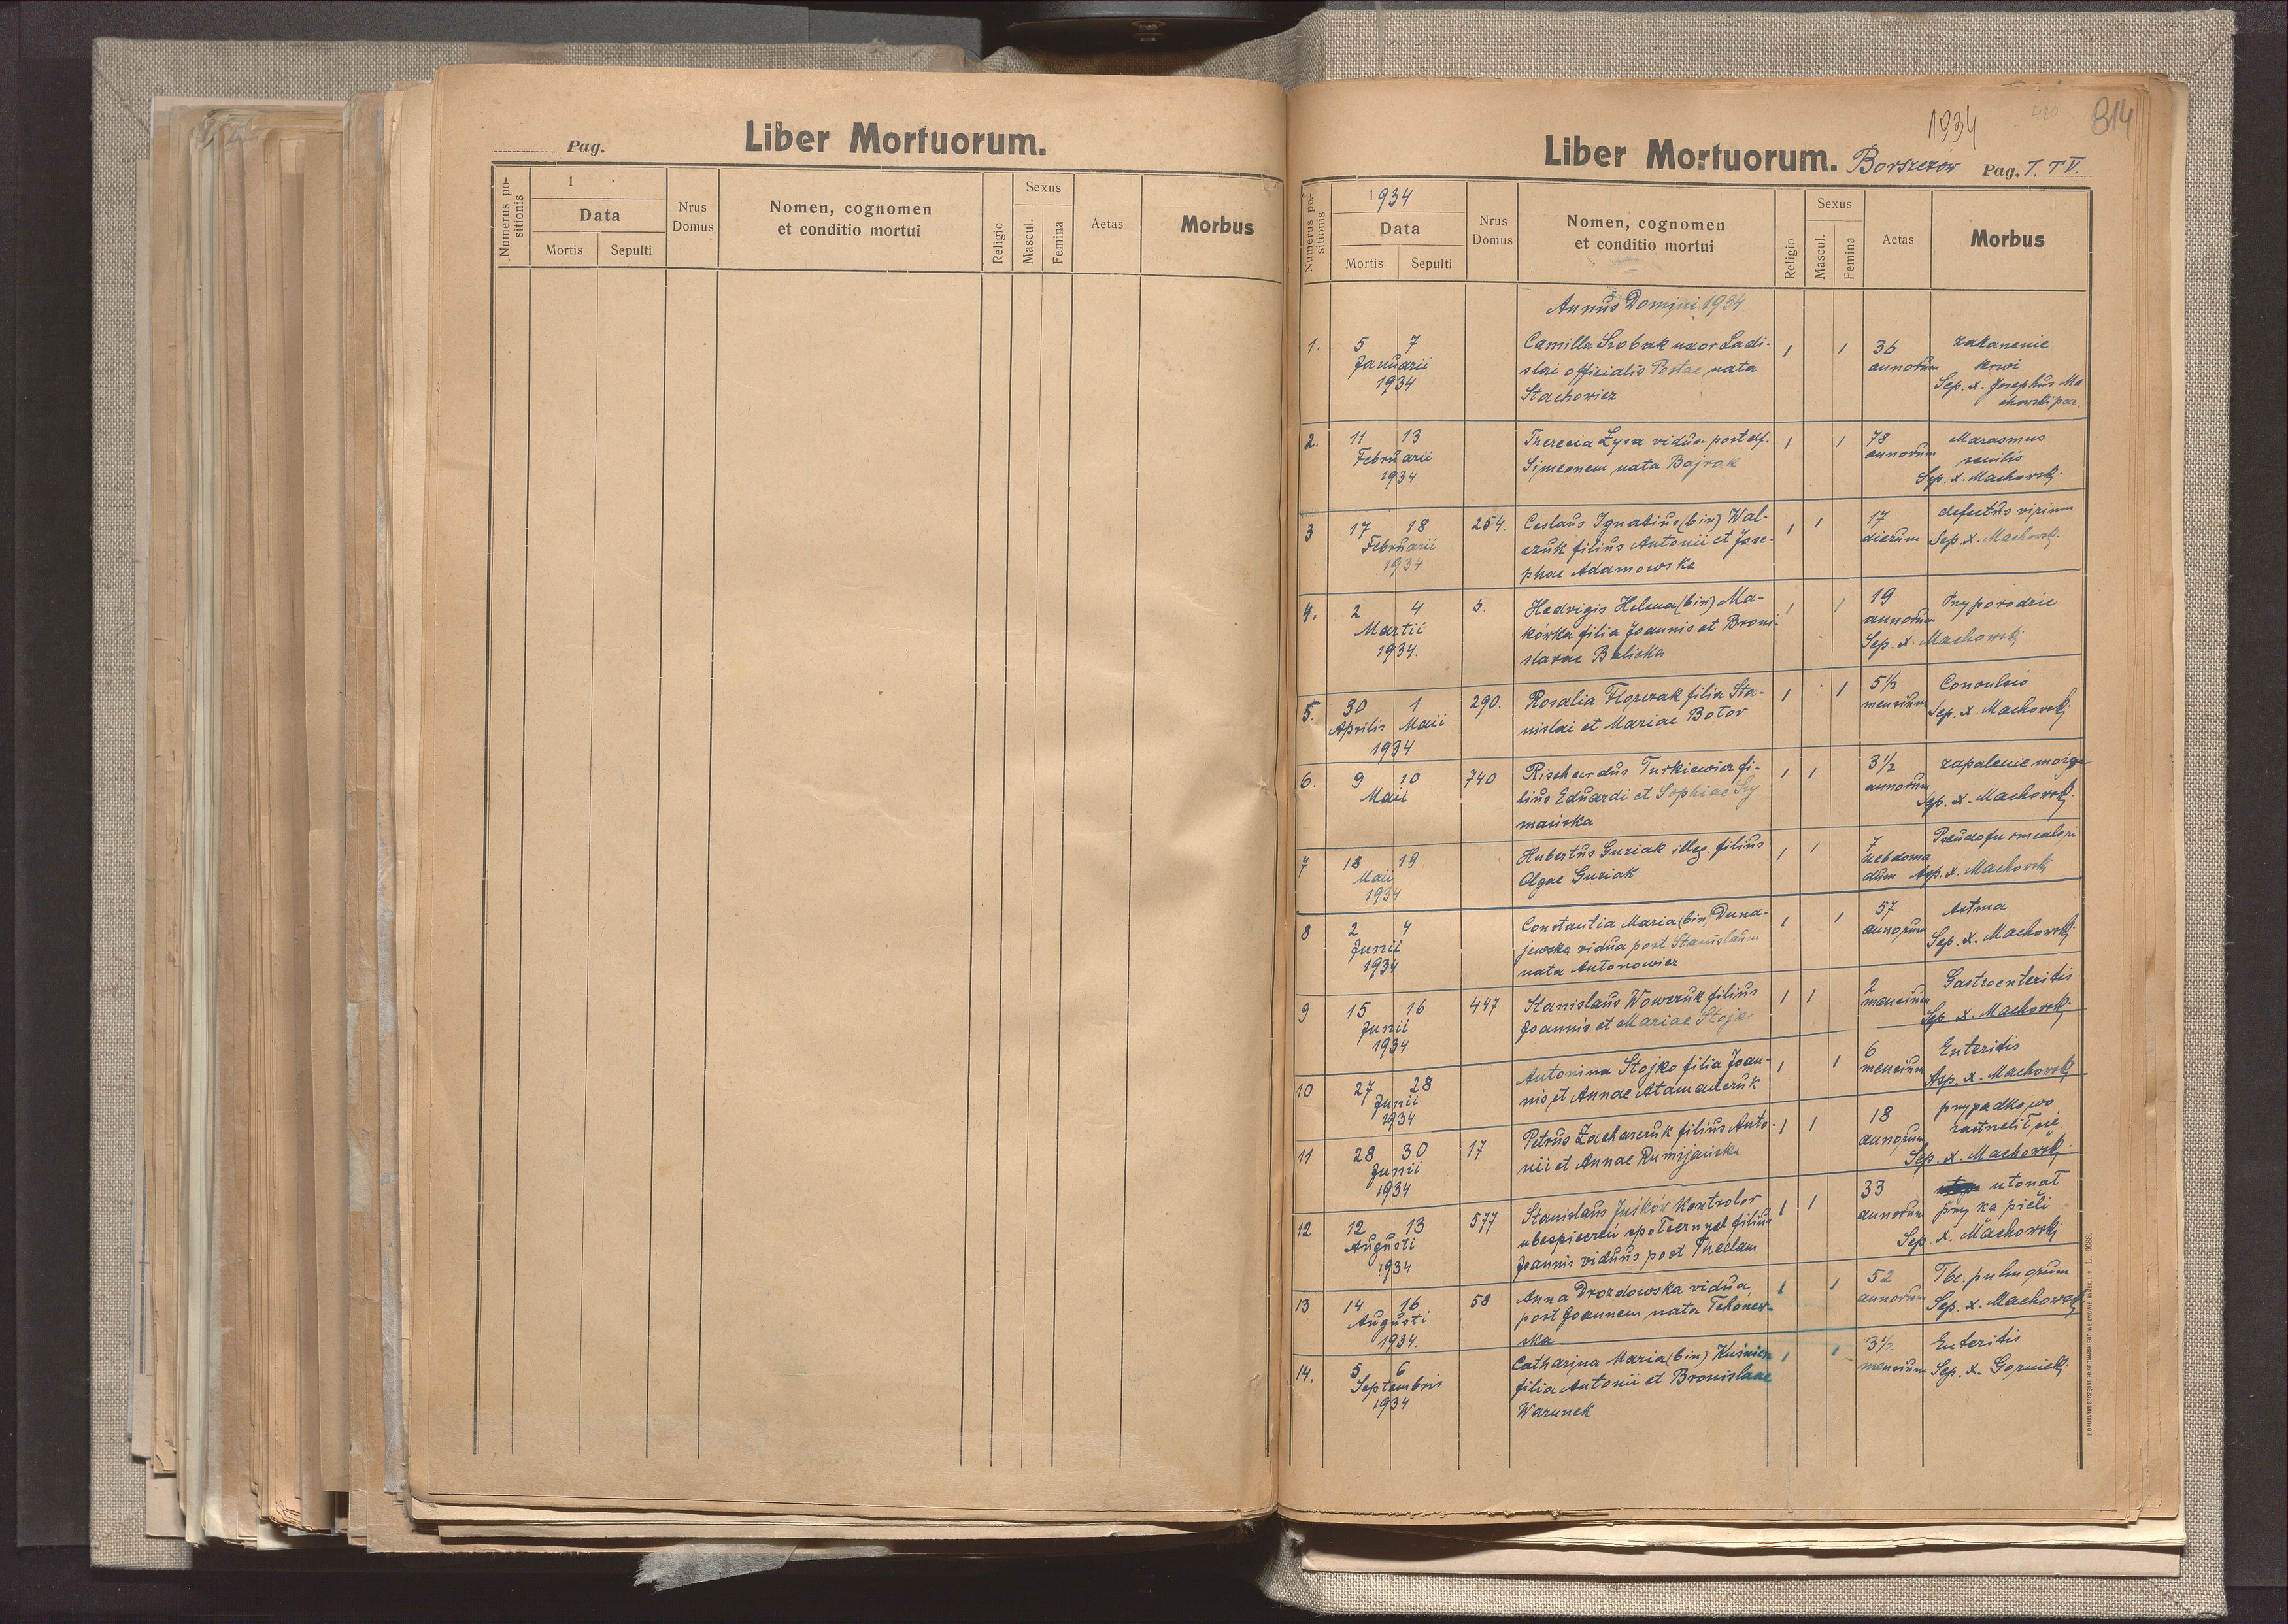 Pag.
Liber Mortuorum.
Numerus positionis
1
Data
Mortis
Sepulti
Nrus Domus
Nomen, cognomen
et conditio mortui
Religio
Sexus
Mascul.
Femina
Aetas
Morbus
1934
420
814
Liber Mortuorum. Borszczow Pag. T. IV.
Numerus positionis
1934
Data
Mortis
Sepulti
Nrus Domus
Nomen, cognomen
et conditio mortui
Religio
Sexus
Mascul.
Femina
Aetas
Morbus
Annus Domini 1934
1. 5 7 Camilla Szobak uxor Ladi- 1 1 36 zakażenie
Januarii slai officialis Postae nata annorum krwi
1934 Stachowicz Sep. x. Josephus Ma
chowski par.
2. 11 13 Theresia Łysa vidua post def. 1 1 78 Marasmus
Februarii Simeonem nata Bajrak annorum senilis
1934 Sep. x. Machowski
3 17 18 254. Ceslaus Ignatius (bin) Wal- 1 1 17 defectus virium
Februarii czuk filius Antonii et Jose- dierum Sep. x. Machowski
1934. phae Adamowska
4. 2 4 5. Hedvigis Helena (bin) Ma- 1 1 19 Przy porodzie
Martii kówka filia Joannis et Broni- annorum
1934. slavae Balicka Sep. x. Machowski
5. 30 1 290. Rosalia Florczak filia Sta- 1 1 5½ Convulsio
Aprilis Maii nislai et Mariae Botor mensium Sep. x. Machowski
1934
6. 9 10 740 Rischardus Turkiewicz fi- 1 1 3½ zapalenie mózgu
Maii lius Eduardi et Sophiae Szy annorum Sep. x. Machowski
mańska
7 18 19 Hubertus Guziak illeg. filius 1 1 7
Maii Olgae Guziak hebdoma
1934 dum Sep. x. Machowski
8 2 4 Constantia Maria (bin) Duna- 1 1 57 Astma
Junii jewska vidua post Stanislaum annorum Sep. x. Machowski
1934 nata Antonowicz
9 15 16 447 Stanislaus Wowczuk filius 1 1 2 Gastroenteritis
Junii Joannis et Mariae Stojko mensium Sep. x. Machowski
1934
10 27 28 Antonina Stojko filia Joan- 1 1 6 Enteritis
Junii nis et Annae Atamanczuk mensium Sep. x. Machowski
1934
11 28 30 17 Petrus Zacharczuk filius Anto- 1 1 18 przypadkowo
Junii nii et Annae Rumijańska annorum zastrzelił się.
1934 Sep. x. Machowski
12 12 13 577 Stanislaus Juśków Kontrolor 1 1 33 utonął
Augusti ubezpieczeń społecznych filius annorum przy kąpieli
1934 Joannis viduus post Theclam Sep. x. Machowski
13 14 16 58 Anna Drozdowska vidua 1 1 52 Tbc. pulmonum
Augusti post Joannem nata Tchorzew- annorum Sep. x. Machowski
1934. ska
14. 5 6 Catharina Maria (bin) Kuśnierz 1 1 3½ Enteritis
Septembris filia Antonii et Bronislavae mensium Sep. x. Gornicki
1934 Warunek